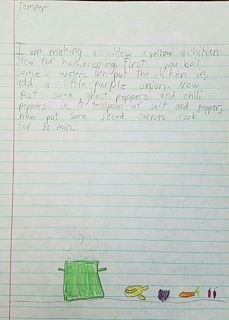 Temper
I am making a stew a yellow chicken
stew for homecoming. First you boil
some water then put the chiken in,
add a little purple onion. Now
put some ghost peppers and chili
peppers in. A teaspoon of salt and pepper,
now put some sliced carrots cook
for 30 min.